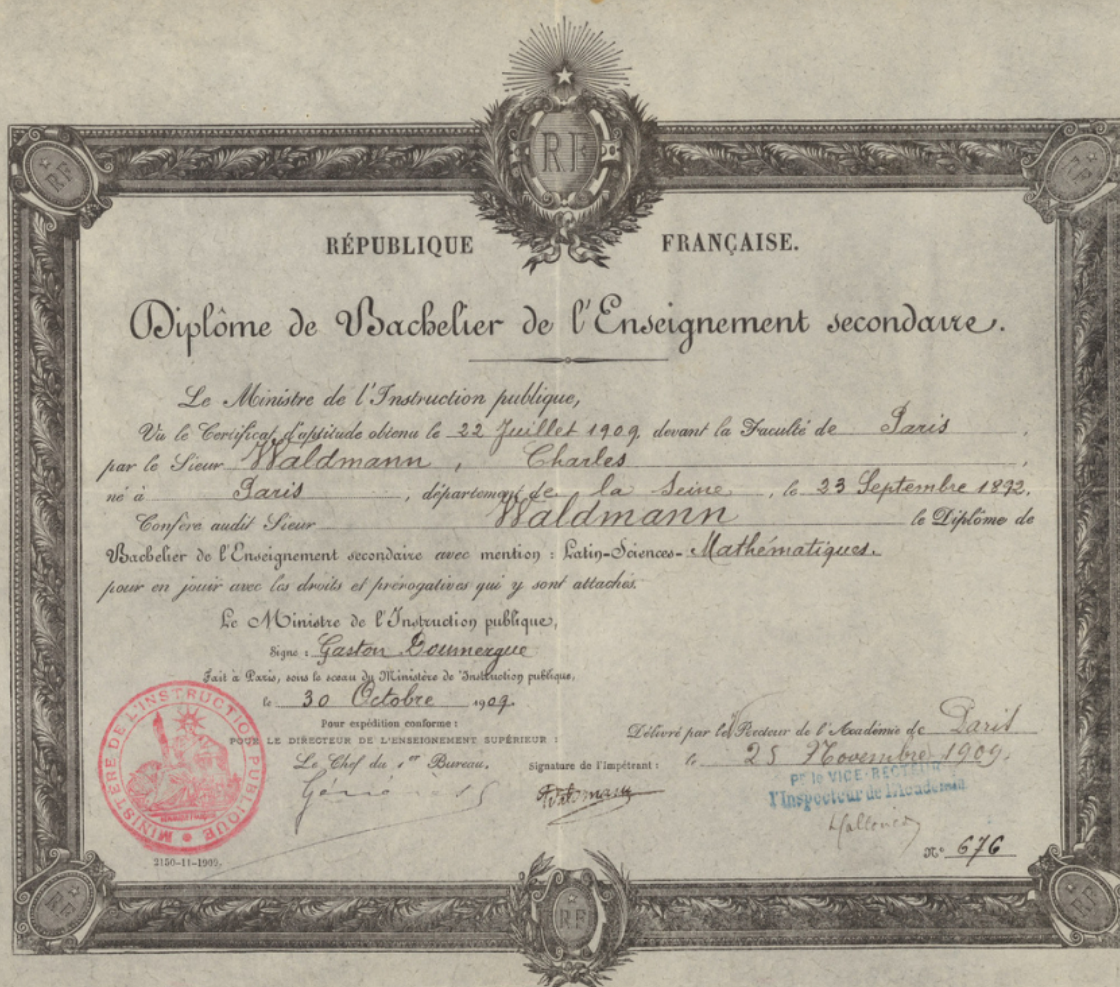 RF
RF
RF
RÉPUBLIQUE FRANÇAISE.
Diplôme de Bachelier de l'Enseignement secondaire.
Le Ministre de l'Instruction publique,
Vu le Certificat d'aptitude obtenu le 22 Juillet 1909, devant la Faculté de Paris,
par le Sieur Waldmann, Charles,
né à Paris, département de la Seine, le 23 Septembre 1892.
Confère audit Sieur Waldmann le Diplôme de
Bachelier de l'Enseignement secondaire avec mention : Latin-Sciences-Mathématiques.
pour en jouir avec les droits et prérogatives qui y sont attachés.
Le Ministre de l'Instruction publique,
Signé : Gaston Doumergue
Fait à Paris, sous le sceau du Ministère de l'Instruction publique,
le 30 Octobre 1909.
Pour expédition conforme :
POUR LE DIRECTEUR DE L'ENSEIGNEMENT SUPÉRIEUR :
Le Chef du 1er Bureau,
Signature de l'Impétrant :
Waldmann
Délivré par le V Recteur de l'Académie de Paris
le 25 Novembre 1909.
Pr le VICE-RECTEUR
l'Inspecteur de l'Académie
N° 676
MINISTÈRE DE L'INSTRUCTION PUBLIQUE
2150-11-1909.
RF
RF
RF